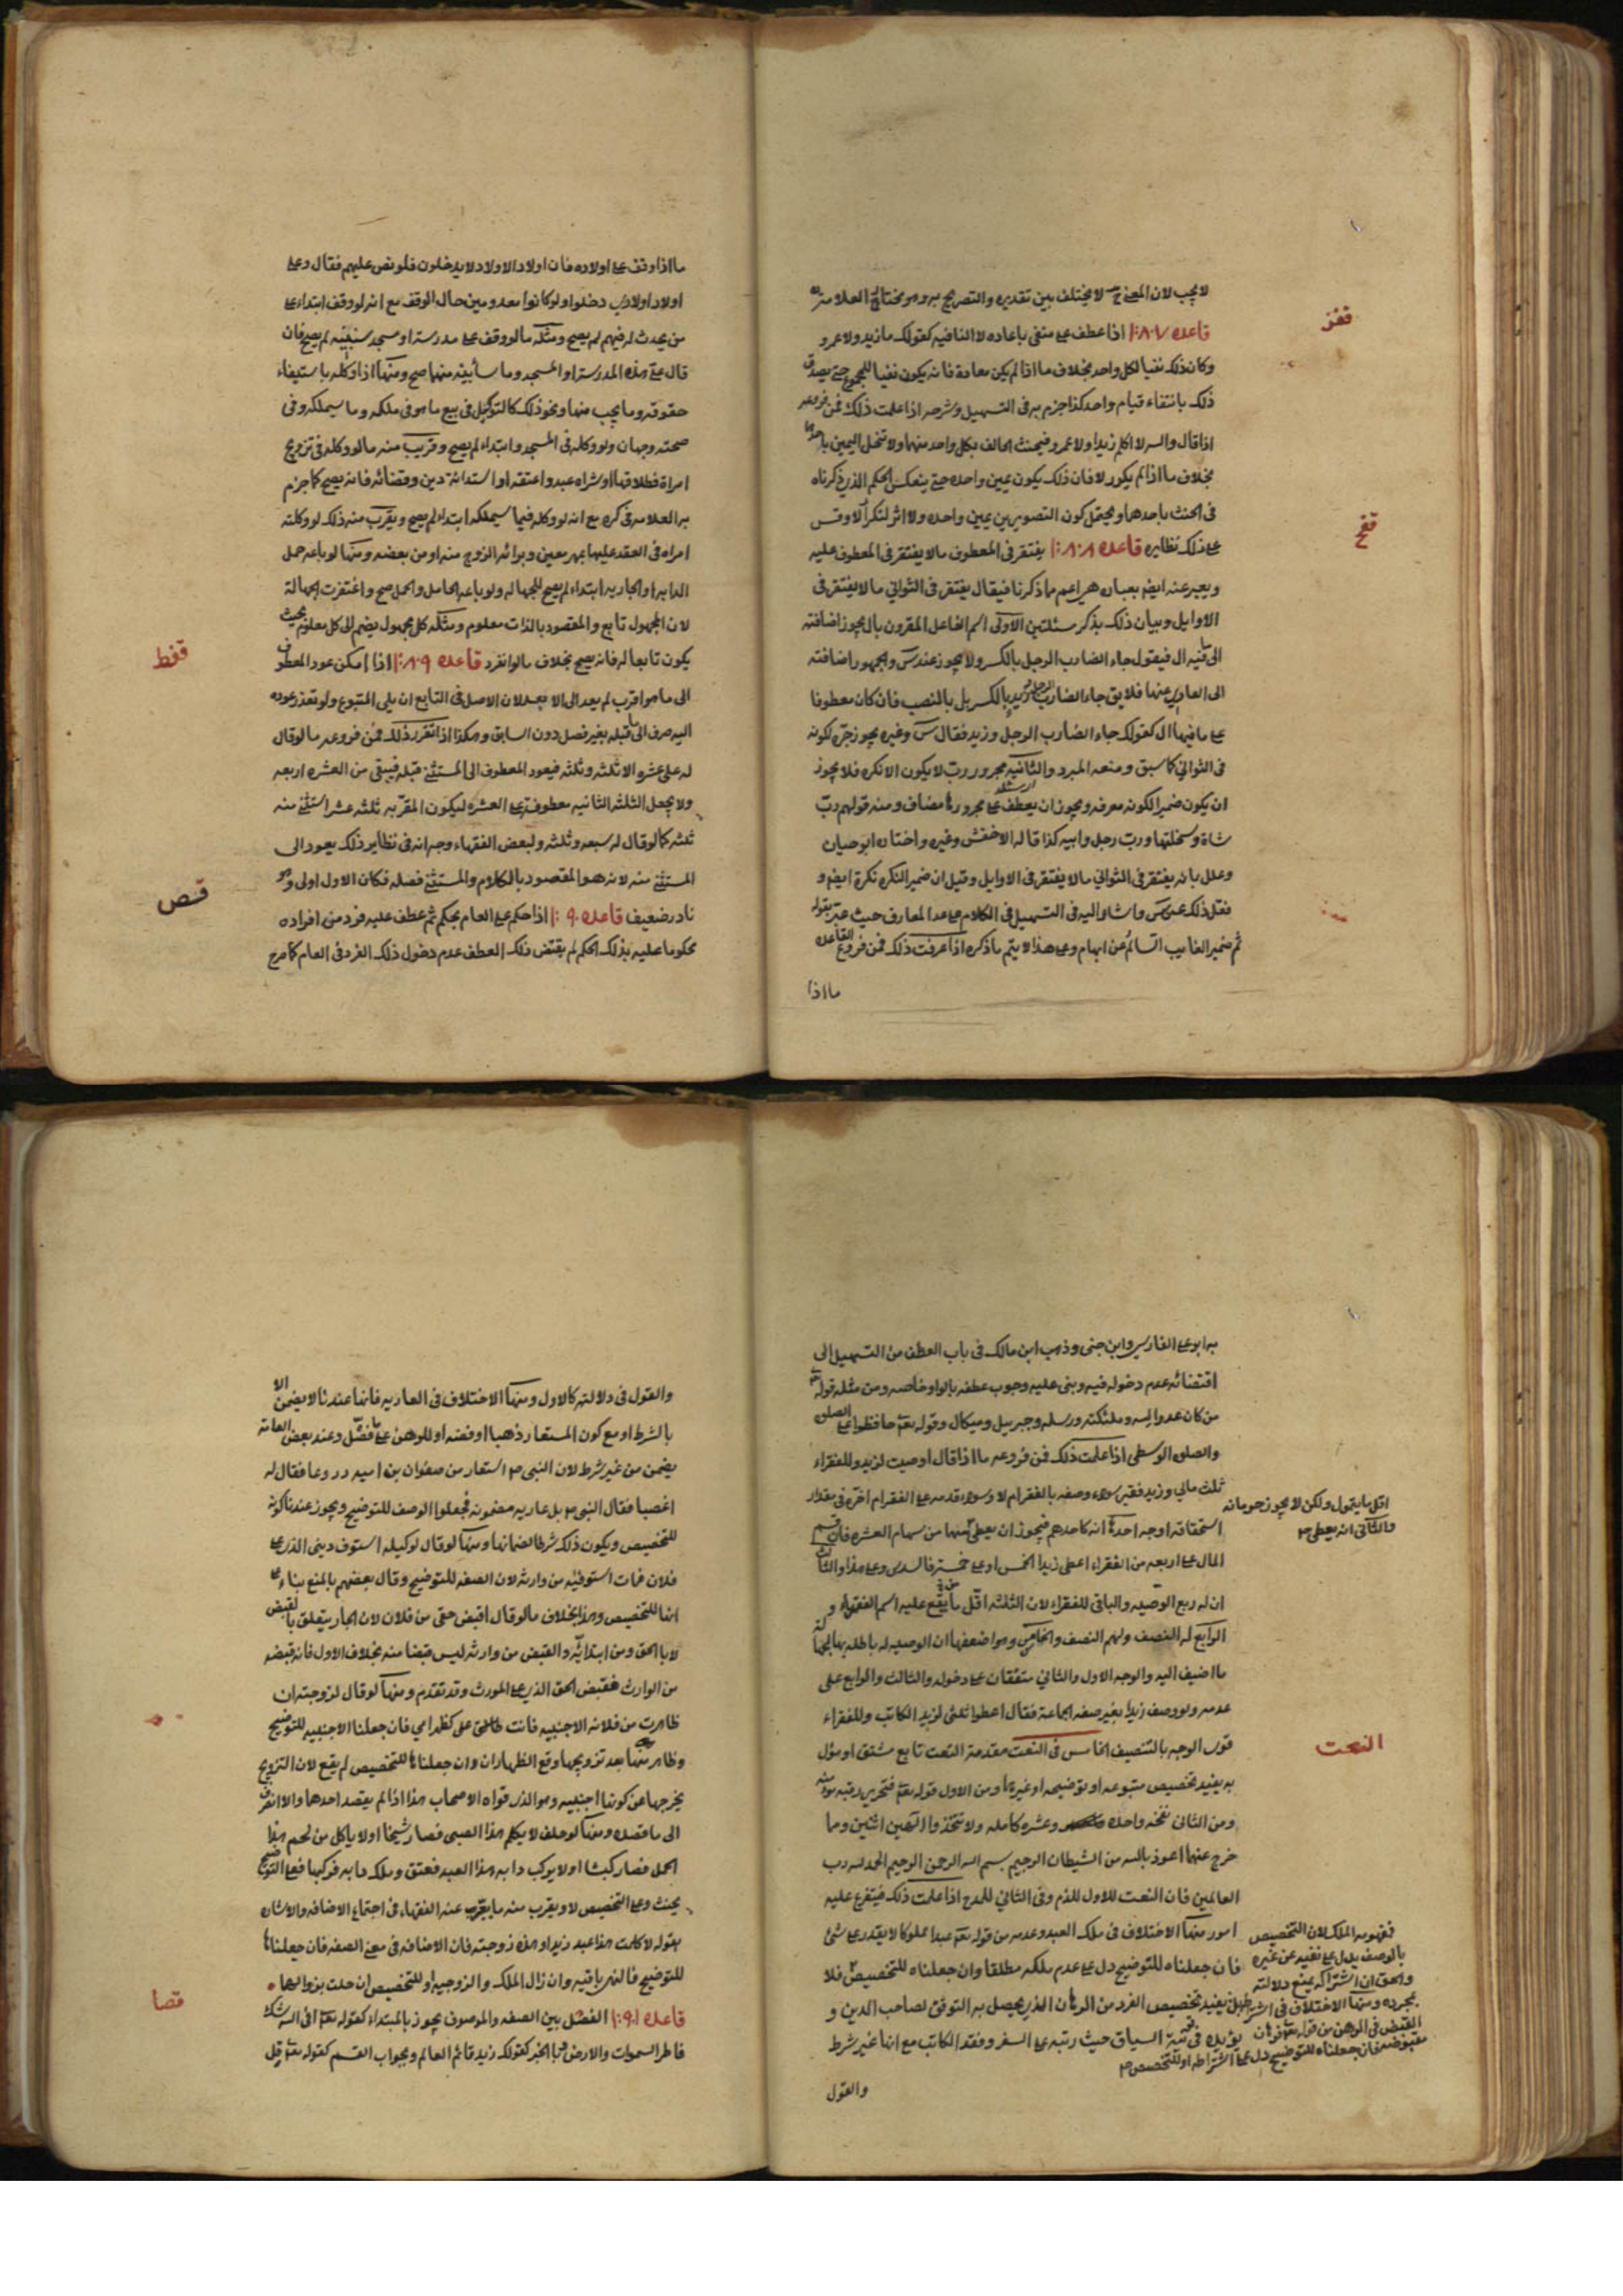 لا يجب لان المعنى ح لا يختلف بين تقديره والتصريح به وهو مختار العلامة
قاعده ١٨٧ اذا عطف على منفى باعاده لا النافيه كقولك ما زيد ولا عمرو
وكان ذلك نفيا لكل واحد بخلاف ما اذا لم يكن معادة فانه يكون نفيا للمجموع حتى يصدق
ذلك بانتفاء قيام واحد كذا جزم به فى التسهيل وشرحه اذا علمت ذلك فمن فروعه
اذا قال والله لا اكلم زيدا ولا عمرو فيحنث الحالف بكل واحد منهما ولا تنحل اليمين باحدهما
بخلاف ما اذا لم يكرر لا فان ذلك يكون يمين واحده حتى ينعكس الحكم الذى ذكرناه
فى الحنث باحدهما ويحتمل كون التصويرين يمين واحده ولا اثر لتكرار لا وقس
على ذلك نظايره قاعده ١٨٨ يغتفر فى المعطوف ما لا يغتفر فى المعطوف عليه
ويعبر عنه ايضا بعباره هى اعم مما ذكرنا فيقال يغتفر فى الثوانى ما لا يغتفر فى
الاوايل وبيان ذلك بذكر مسئلتين الاولى اسم الفاعل المقرون بال يجوز اضافته
الى ما فيه ال فيقول جاء الضارب الرجل بالكسر ولا يجوز عند س والجمهور اضافته
الى العارى عنها فلا يق جاء الضارب زيد بالكسر بل بالنصب فان كان معطوفا
على ما فيها ال كقولك جاء الضارب الرجل وزيد فقال س وغيره يجوز جره لكونه
فى الثوانى كما سبق ومنعه المبرد والثانيه مجرور رب لا يكون الا نكره فلا يجوز
ان يكون ضميرا لكونه معرفه ويجوز ان يعطف على مجرورها مضاف ومنه قولهم رب
شاة وسخلتها ورب رجل وابيه كذا قاله الاخفش وغيره واختاره ابو حيان
وعلل بانه يغتفر فى الثوانى ما لا يغتفر فى الاوايل وقيل ان ضمير النكره نكرة ايضا و
فعل ذلك عن س واشار اليه فى التسهيل فى الكلام على عد المعارف حيث عبر بقوله
ثم ضمير الغايب السالم عن ابهام وعلى هذا لا يتم ما ذكره اذا عرفت ذلك فمن فروع القاعده
ما اذا
قفز
قفح
ما اذا وقف على اولاده فان اولاد الاولاد لا يدخلون فلو نص عليهم فقال وعلى
اولاد اولادى دخلوا ولو كانوا معدومين حال الوقف مع انه لو وقف ابتداء على
من يحدث له فيهم لم يصح ومثله ما لو وقف على مدرسة او مسجد سيبنيه لم يصح فان
قال على هذه المدرسة او المسجد وما سأبنيه منها صح ومنها اذا وكله باستيفاء
حقوقه وما يجب منها ونحو ذلك كالتوكيل فى بيع ما هو فى ملكه وما سيملكه وفى
صحته وجهان ولو وكله فى المسجد وابتداء لم يصح وقريب منه ما لو وكله فى تزويج
امراة فطلاقها او شراء عبد واعتقه او استدانة دين وقضائه فانه يصح كما جزم
به العلامه فى كره مع انه لو وكله فيما سيملكه ابتداء لم يصح ويقرب منه ذلك لو وكلته
امراه فى العقد عليها بمهر معين وبرائه الزوج منه او من بعضه ومنها لو باعه حمل
الدابه او الجاريه ابتداء لم يصح للجهاله ولو باعه الحامل والحمل صح واغتفرت الجهالة
لان المجهول تابع والمقصود بالذات معلوم ومثله كل مجهول يضم الى كل معلوم بحيث
يكون تابعا له فانه يصح بخلاف ما لو انفرد قاعده ١٨٩ اذا امكن عود المعطوف
الى ما هو اقرب لم يعد الى الابعد لان الاصل فى التابع ان يلى المتبوع ولو تعذر عوده
اليه صرف الى ما قبله بغير فصل دون السابق وهكذا اذا تقرر ذلك فمن فروعه ما لو قال
له على عشره الا ثلثه وثلثه فيعود المعطوف الى المستثنى قبله فيبقى من العشره اربعه
ولا يجعل الثلثه الثانيه معطوفة على العشره ليكون المقر به ثلثه عشر استثنى منه
ثلثه كما لو قال له سبعه وثلثه ولبعض الفقهاء وجه انه فى نظاير ذلك يعود الى
المستثنى منه لانه هو المقصود بالكلام والمستثنى فضله فكان الاول اولى وهو
نادر ضعيف قاعده ١٩٠ اذا حكم على العام بحكم ثم عطف عليه فرد من افراده
محكوما عليه بذلك الحكم لم يقتض ذلك العطف عدم دخول ذلك الفرد فى العام كما صرح
قفط
قص
به ابو على الفارسى وابن جنى وذهب ابن مالك فى باب العطف من التسهيل الى
اقتضائه عدم دخوله فيه وبنى عليه وجوب عطفه بالواو خاصه ومن مثله قوله تع
من كان عدوا لله وملئكته ورسله وجبريل وميكال وقوله تع حافظوا على الصلوه
والصلوه الوسطى اذا علمت ذلك فمن فروعه ما اذا قال اوصيت لزيد وللفقراء
ثلث مالى وزيد فقير سواء وصفه بالفقر ام لا وسواء قدمه على الفقراء ام اخره فى مقدار
استحقاقه اوجه احدها انه كاحدهم فيجوز ان يعطى منها من سهام العشره فان قسم
المال على اربعه من الفقراء اعطى زيدا الخمس او على خمسة فالسدس وعلى هذا والثالث
ان له ربع الوصيه والباقى للفقراء لان الثلثه اقل من يقع عليه اسم الفقراء و
الرابع له النصف ولهم النصف والخامس وهو اضعفها ان الوصيه له باطله بها لجهالة
ما اضيف اليه والوجه الاول والثانى متفقان على دخوله والثالث والرابع على
عدمه ولو وصف زيدا بغير صفه الجماعة فقال اعطوا ثلثى لزيد الكاتب وللفقراء
قوى الوجه بالتنصيف الخامس فى النعت مقدمة النعت تابع مشتق او مؤل
به يفيد تخصيص متبوعه او توضيحه او غيرها ومن الاول قوله تع فتحرير رقبه مؤمنه
ومن الثانى نفخه واحده وعشره كامله ولا تتخذوا الهين اثنين وما
خرج عنهما اعوذ بالله من الشيطان الرجيم بسم الله الرحمن الرحيم الحمد لله رب
العالمين فان النعت للاول للذم وفى الثانى للمدح اذا علمت ذلك فيتفرع عليه
امور منها الاختلاف فى ملك العبد وعدمه من قوله تع عبدا مملوكا لا يقدر على شئ
فان جعلناه للتوضيح دل على عدم ملكه مطلقا وان جعلناه للتخصيص فلا
بل يفيد تخصيص الفرد من الرهان الذى يحصل به التوثق لصاحب الدين و
يؤيده فى تتمة السياق حيث رتبه على السفر وفقد الكاتب مع انها غير شرط
والقول
اقل ما يتمول ولكن لا يجوز حرمانه
والثانى انه يعطى
النعت
فمفهومه الملك لان التخصيص
بالوصف يدل على نفيه عن غيره
والحق ان اشتراكه يمنع دلالته
بمجرده ومنها الاختلاف فى اشتراط
القبض فى الرهن من قوله تع فرهان
مقبوضه فان جعلناه للتوضيح دل على اشتراطه او للتخصيص
والقول فى دلالته كالاول ومنها الاختلاف فى العاريه فانها عندنا لا يضمن الا
بالشرط او مع كون المستعار ذهبا او فضه او للرهن على ما فصل وعند بعض العامة
يضمن من غير شرط لان النبى ص استعار من صفوان بن اميه دروعا فقال له
اغصبا فقال النبى ص بل عاريه مضمونه فجعلوا الوصف للتوضيح ويجوز عندنا كونه
للتخصيص ويكون ذلك شرطا لضمانها ومنها لو قال لوكيله استوف دينى الذى على
فلان فمات استوفيه من وارثه لان الصفه للتوضيح وقال بعضهم بالمنع بناء على
انها للتخصيص وهذا بخلاف ما لو قال اقبض حقى من فلان لان الجار يتعلق بالقبض
لا بالحق ومن ابتدائيه والقبض من وارثه ليس قبضا منه بخلاف الاول فانه قبضه
من الوارث فقبض الحق الذى على المورث وقد تقدم ومنها لو قال لزوجته ان
ظاهرت من فلانه الاجنبيه فانت على كظهر امى فان جعلنا الاجنبيه للتوضيح
وظاهر منها بعد تزويجها وقع الظهاران وان جعلناها للتخصيص لم يقع لان التزويج
يخرجها عن كونها اجنبيه وهو الذى قواه الاصحاب هذا اذا لم يقصد احدهما والا انصرف
الى ما قصده ومنها لو حلف لا يكلم هذا الصبى فصار شيخا او لا ياكل من لحم هذا
الحمل فصار كبشا او لا يركب دابه هذا العبد فعتق وملك دابه فركبها فعلى التوضيح
يحنث وعلى التخصيص لا ويقرب منه ما يقرب عنه الفقهاء فى اجتماع الاضافه والاشاره
بقوله لا كلمت هذا عبد زيد او هذه زوجته فان الاضافه فى معنى الصفه فان جعلناها
للتوضيح فاليمين باقيه وان زال الملك والزوجيه او للتخصيص انحلت بزوالهما
قاعده ١٩١ الفصل بين الصفه والموصوف يجوز بالمبتداء كقوله تع افى الله شك
فاطر السموات والارض وبالخبر كقولك زيد قائم العالم وبجواب القسم كقوله تع قل
قصا